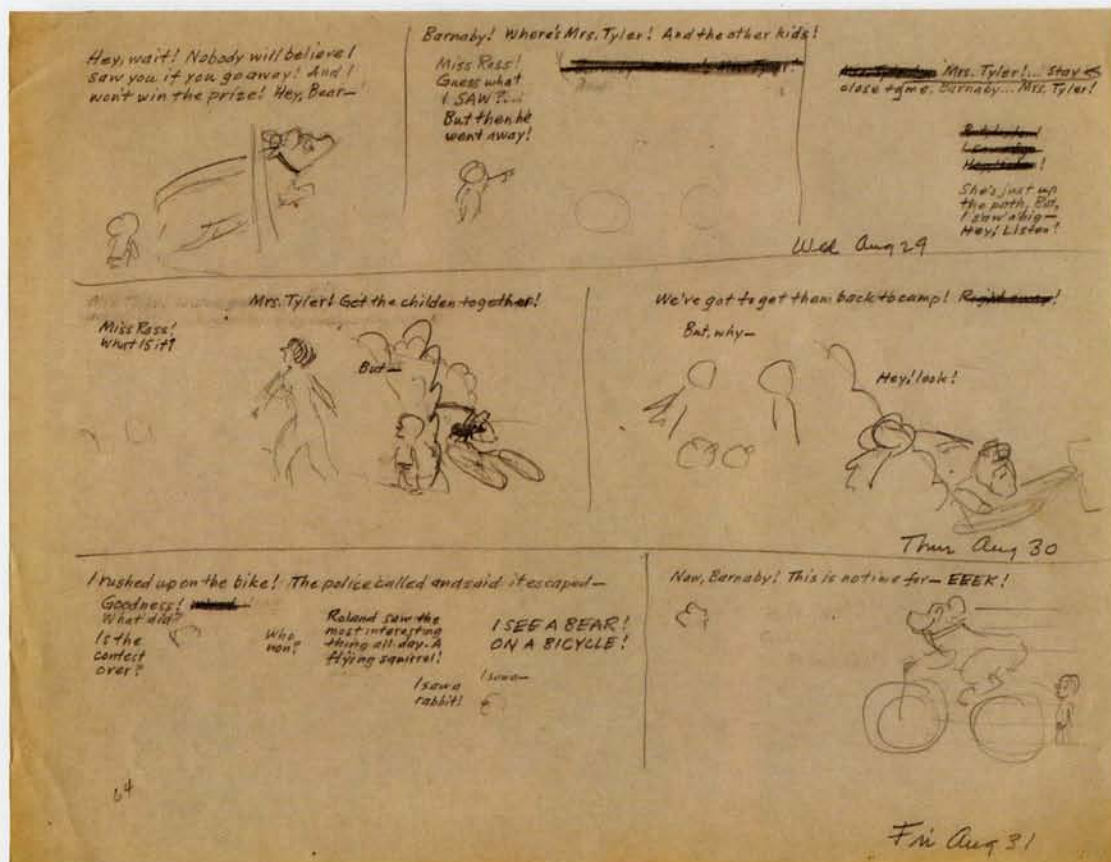 Hey, wait! Nobody will believe I
saw you if you go away! And I
won't win the prize! Hey, Bear—
Barnaby! Where's Mrs. Tyler! And the other kids!
Miss Ross!
Guess what
I SAW?...
But then he
went away!
Mrs. Tyler!... Stay
close to me, Barnaby... Mrs. Tyler!
She's just up
the path, But,
I saw a big—
Hey! Listen!
Wed Aug 29
Mrs. Tyler! Get the childen together!
Miss Ross!
What IS it?
But—
We've got to get them back to camp! Right away!
But, why—
Hey! look!
Thur Aug 30
I rushed up on the bike! The police called and said it escaped—
Goodness!
What did?
Is the
contest
over?
Who
won?
Roland saw the
most interesting
thing all day. A
flying squirrel!
I SEE A BEAR!
ON A BICYCLE!
I saw a
rabbit!
I saw—
Now, Barnaby! This is no time for— EEEK!
64
Fri Aug 31